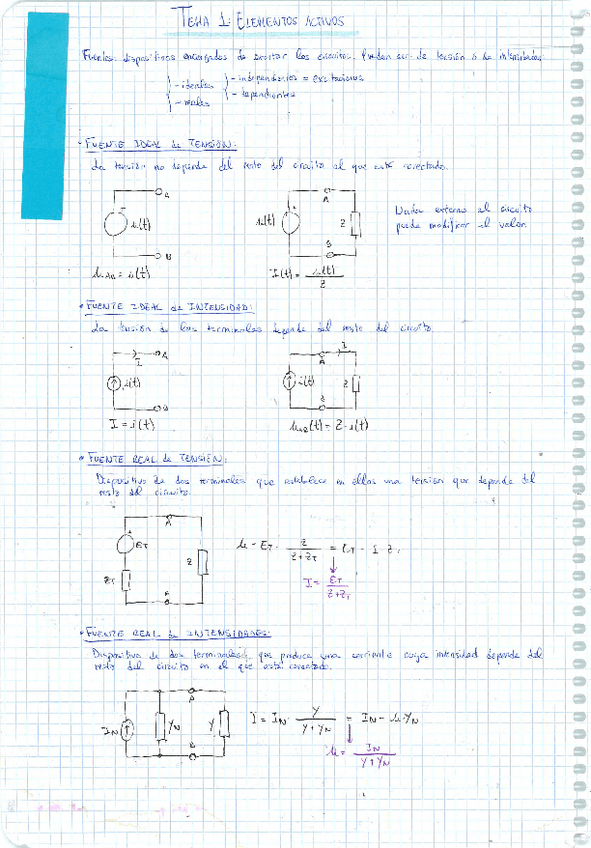 TEMA 1: ELEMENTOS ACTIVOS
Fuentes: dispositivos encargados de excitar los circuitos. Pueden ser de tensión o de intensidad:
- ideales
- reales
- independientes = excitaciones
- dependientes
· FUENTE IDEAL de TENSIÓN:
La tensión no depende del resto del circuito al que esté conectado.
A
u(t)
B
u(t)
A
B
Z
Nada externo al circuito
puede modificar el valor
u_AB = u(t)
I(t) = u(t)/Z
· FUENTE IDEAL de INTENSIDAD:
La tensión de los terminales depende del resto del circuito.
A
I
i(t)
B
A
I
i(t)
Z
B
I = i(t)
u_AB(t) = Z · i(t)
· FUENTE REAL de TENSIÓN:
Dispositivo de dos terminales que establece en ellos una tensión que depende del
resto del circuito.
A
E_T
Z_T
Z
B
u = E_T · Z/(Z+Z_T) = E_T - I Z
I = E_T/(Z+Z_T)
· FUENTE REAL de INTENSIDADES:
Dispositivo de dos terminales, que produce una corriente cuya intensidad depende del
resto del circuito en el que está conectado.
A
I_N
Y_N
Y
B
I = I_N · Y/(Y+Y_N) = I_N - u·Y_N
u = I_N/(Y+Y_N)